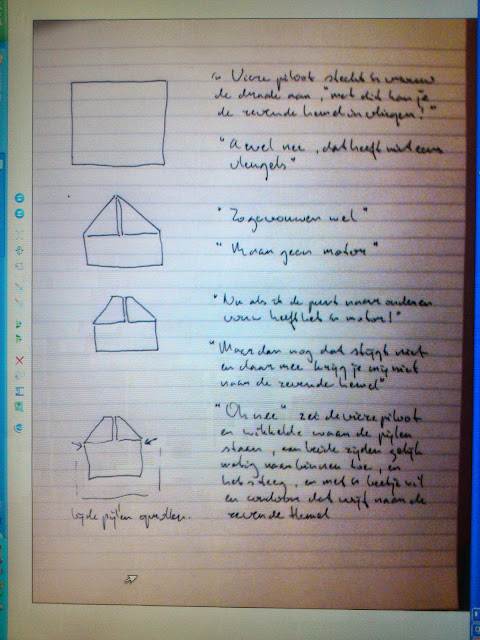 "Vieze piloot steekt
de draade aan, "met dit kan je
de zevende hemel in vliegen!"
"Awel nee, dat heeft niet eens
vleugels"
"Zo gevouwen wel"
"Maar geen motor"
"Nu als ik de punt naar onderen
vouw heeft het motor!"
"Maar dan nog dat stijgt niet
en daar mee krijg je mij niet
naar de zevende hemel"
"Oh nee" zei de vieze piloot
en wikkelde waar de pijlen
staan, aan beide zijden gelijk
matig naar binnen toe, en
het steeg, en met beetje
en dat wijf naar de
zevende hemel
bij de pijlen